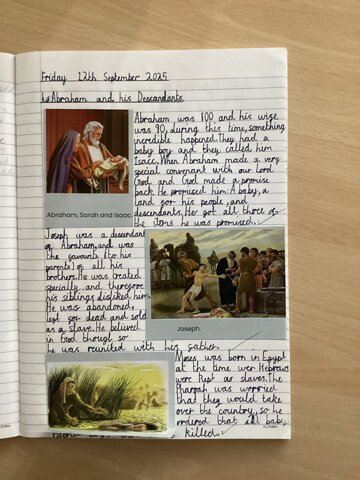 Friday 12th September 2025
Abraham and his Descendants
Abraham was 100 and his wige
was 90, during this time, something
incredible happened. They had a
baby boy and they called him
Isacc. When Abraham made a very
special convenant with our Lord
God and God made a promise
back. He promised him: A baby, a
land for his people, and
descendants. He got all three of
the items he was promised.
Abraham, Sarah and Isaac.
Joseph was a descendant
of Abraham, and was
the favourite (to his
parents) of all his
brothers. He was treated
specially and therefore
his siblings disliked him.
He was abandoned,
left for dead and sold
as a slave. He believed
in God though so
he was reunited with his father.
Joseph.
Moses was born in Egypt
at the time wer Hebrews
were kept as slaves. The
Pharoah was worried
that they would take
over the country, so he
ordered that all baby
killed.